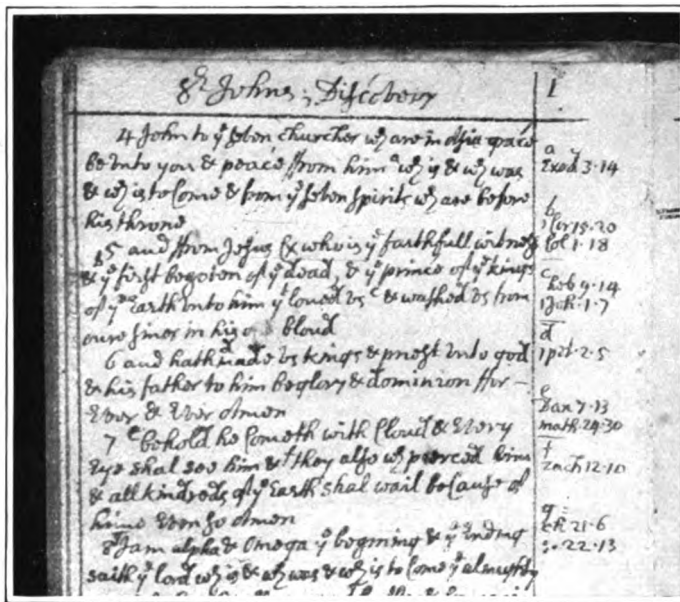 St Johns Discovery
1
4 John to ye seven churches wch are in Asia grace
be Unto you & peace from him a wch is & wch was
& wch is to Come & from ye seven spirits wch are before
his throne
5 and from Jesus Cx who is ye faithfull witness
& ye first begoten of ye dead, & ye prince of ye kings
of ye Earth Unto him yt loved Us c & washed Us from
oure sines in his bloud
6 and hath d made Us kings & priest Unto god
& his father to him be glory & dominion for –
Ever & Ever Amen
7 e behold he Cometh with Cloud & Every
Eye shal see him & f they also wch pierced him
& all kindreds of ye Earth shal wail because of
hime Even so Amen
8 g I am alpha & Omega ye begining & ye Ending
saith ye lord wch is & wch was & wch is to Come ye almighty
a
Exod 3·14
b
1 Cor 15·20
Col 1·18
c
heb 9·14
1 Joh·1·7
d
1 pet·2·5
e
Dan 7·13
math·24·30
f
zach 12·10
g
ch 21·6
22·13